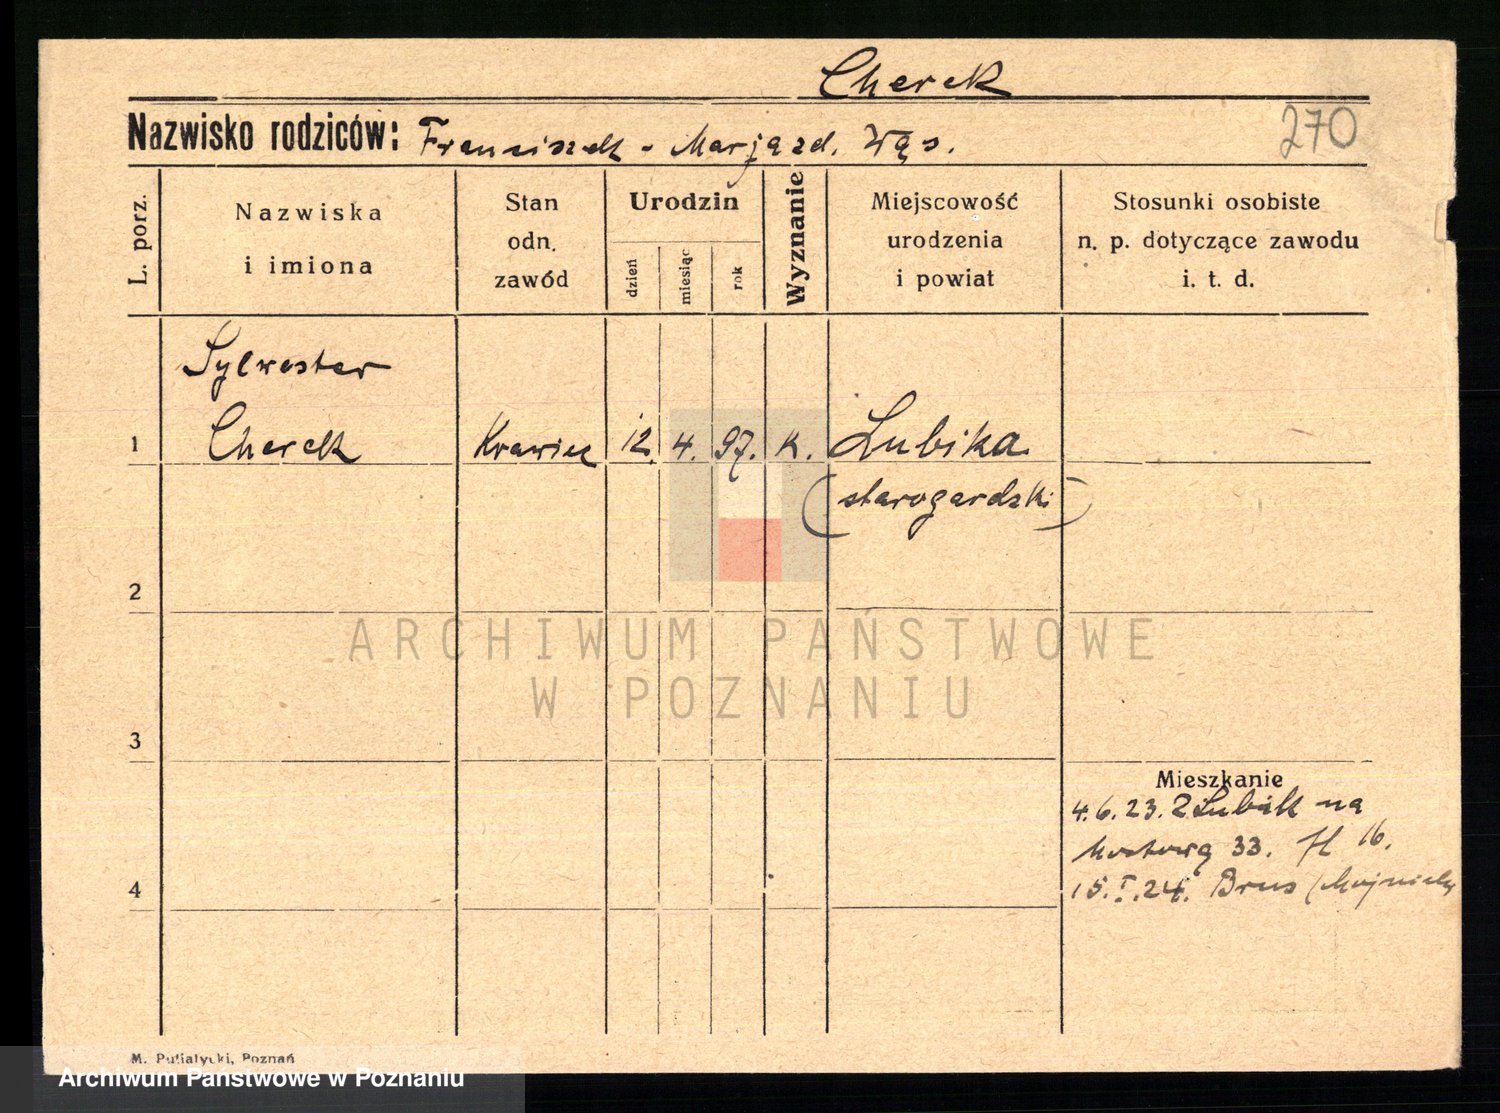 Cherek
Nazwisko rodziców: Franciszek - Marja zd. Wąs.
270
L. porz.
Nazwiska
i imiona
Stan
odn.
zawód
Urodzin
dzień
miesiąc
rok
Wyznanie
Miejscowość
urodzenia
i powiat
Stosunki osobiste
n. p. dotyczące zawodu
i. t. d.
Sylwester
1 Cherek Krawiec 12. 4. 97. k. Lubika
(starogardzki)
2
ARCHIWUM PAŃSTWOWE
W POZNANIU
3
Mieszkanie
4.6.23. z na
Mostową 33. 16.
4
15.I.24. Brus
M. Putiatycki, Poznań
Archiwum Państwowe w Poznaniu